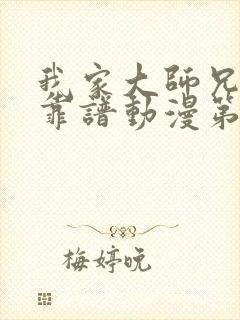 我家大師兄
靠譜動漫第
梅婷晚